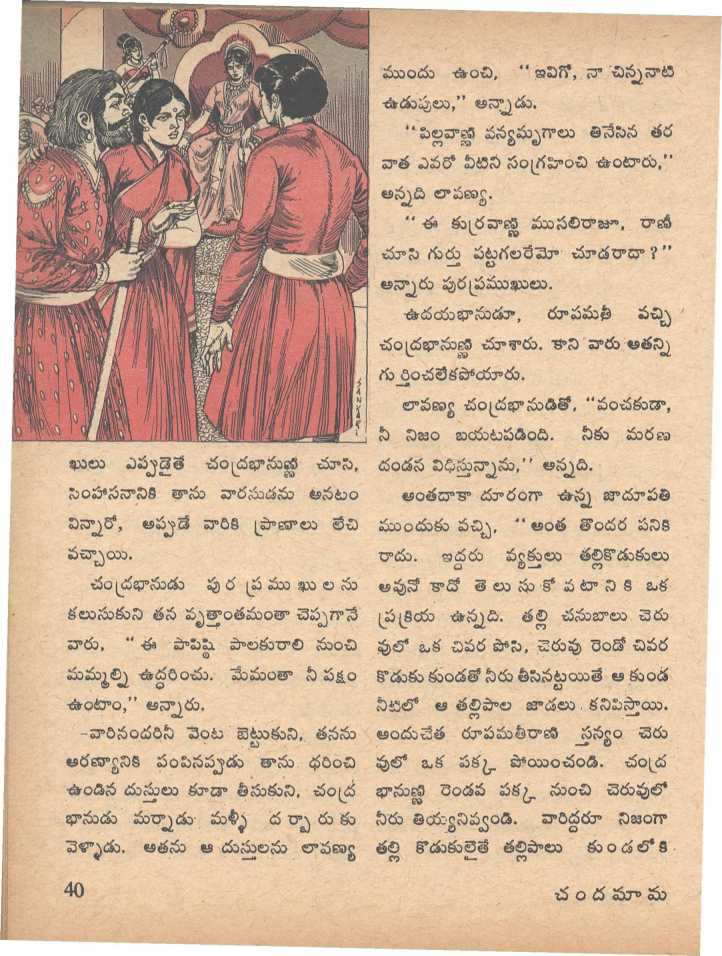 SANKAR
ఖులు ఎప్పుడైతే చంద్రభానుణ్ణి చూసి,
సింహాసనానికి తాను వారసుడను అనటం
విన్నారో, అప్పుడే వారికి ప్రాణాలు లేచి
వచ్చాయి.
చంద్రభానుడు పుర ప్రముఖులను
కలుసుకుని తన వృత్తాంతమంతా చెప్పగానే
వారు, “ఈ పాపిష్ఠి పాలకురాలి నుంచి
మమ్మల్ని ఉద్ధరించు. మేమంతా నీ పక్షం
ఉంటాం,” అన్నారు.
వారినందరినీ వెంట బెట్టుకుని, తనను
అరణ్యానికి పంపినప్పుడు తాను ధరించి
ఉండిన దుస్తులు కూడా తీసుకుని, చంద్ర
భానుడు మర్నాడు మళ్ళీ దర్బారుకు
వెళ్ళాడు. అతను ఆ దుస్తులను లావణ్య
ముందు ఉంచి, “ఇవిగో, నా చిన్ననాటి
ఉడుపులు,” అన్నాడు.
“పిల్లవాణ్ణి వన్యమృగాలు తినేసిన తర
వాత ఎవరో వీటిని సంగ్రహించి ఉంటారు,”
అన్నది లావణ్య.
“ఈ కుర్రవాణ్ణి ముసలిరాజూ, రాణీ
చూసి గుర్తు పట్టగలరేమో చూడరాదా?”
అన్నారు పురప్రముఖులు.
ఉదయభానుడూ, రూపమతీ వచ్చి
చంద్రభానుణ్ణి చూశారు. కాని వారు అతన్ని
గుర్తించలేకపోయారు.
లావణ్య చంద్రభానుడితో, “వంచకుడా,
నీ నిజం బయటపడింది. నీకు మరణ
దండన విధిస్తున్నాను,” అన్నది.
అంతదాకా దూరంగా ఉన్న జాదూపతి
ముందుకు వచ్చి, “అంత తొందర పనికి
రాదు. ఇద్దరు వ్యక్తులు తల్లికొడుకులు
అవునో కాదో తెలుసుకోవటానికి ఒక
ప్రక్రియ ఉన్నది. తల్లి చనుబాలు చెరు
వులో ఒక చివర పోసి, చెరువు రెండో చివర
కొడుకు కుండతో నీరు తీసినట్టయితే ఆ కుండ
నీటిలో ఆ తల్లిపాల జాడలు కనిపిస్తాయి.
అందుచేత రూపమతీరాణి స్తన్యం చెరు
వులో ఒక పక్క పోయించండి. చంద్ర
భానుణ్ణి రెండవ పక్క నుంచి చెరువులో
నీరు తియ్యనివ్వండి. వారిద్దరూ నిజంగా
తల్లి కొడుకులైతే తల్లిపాలు కుండలోకి
40
చందమామ